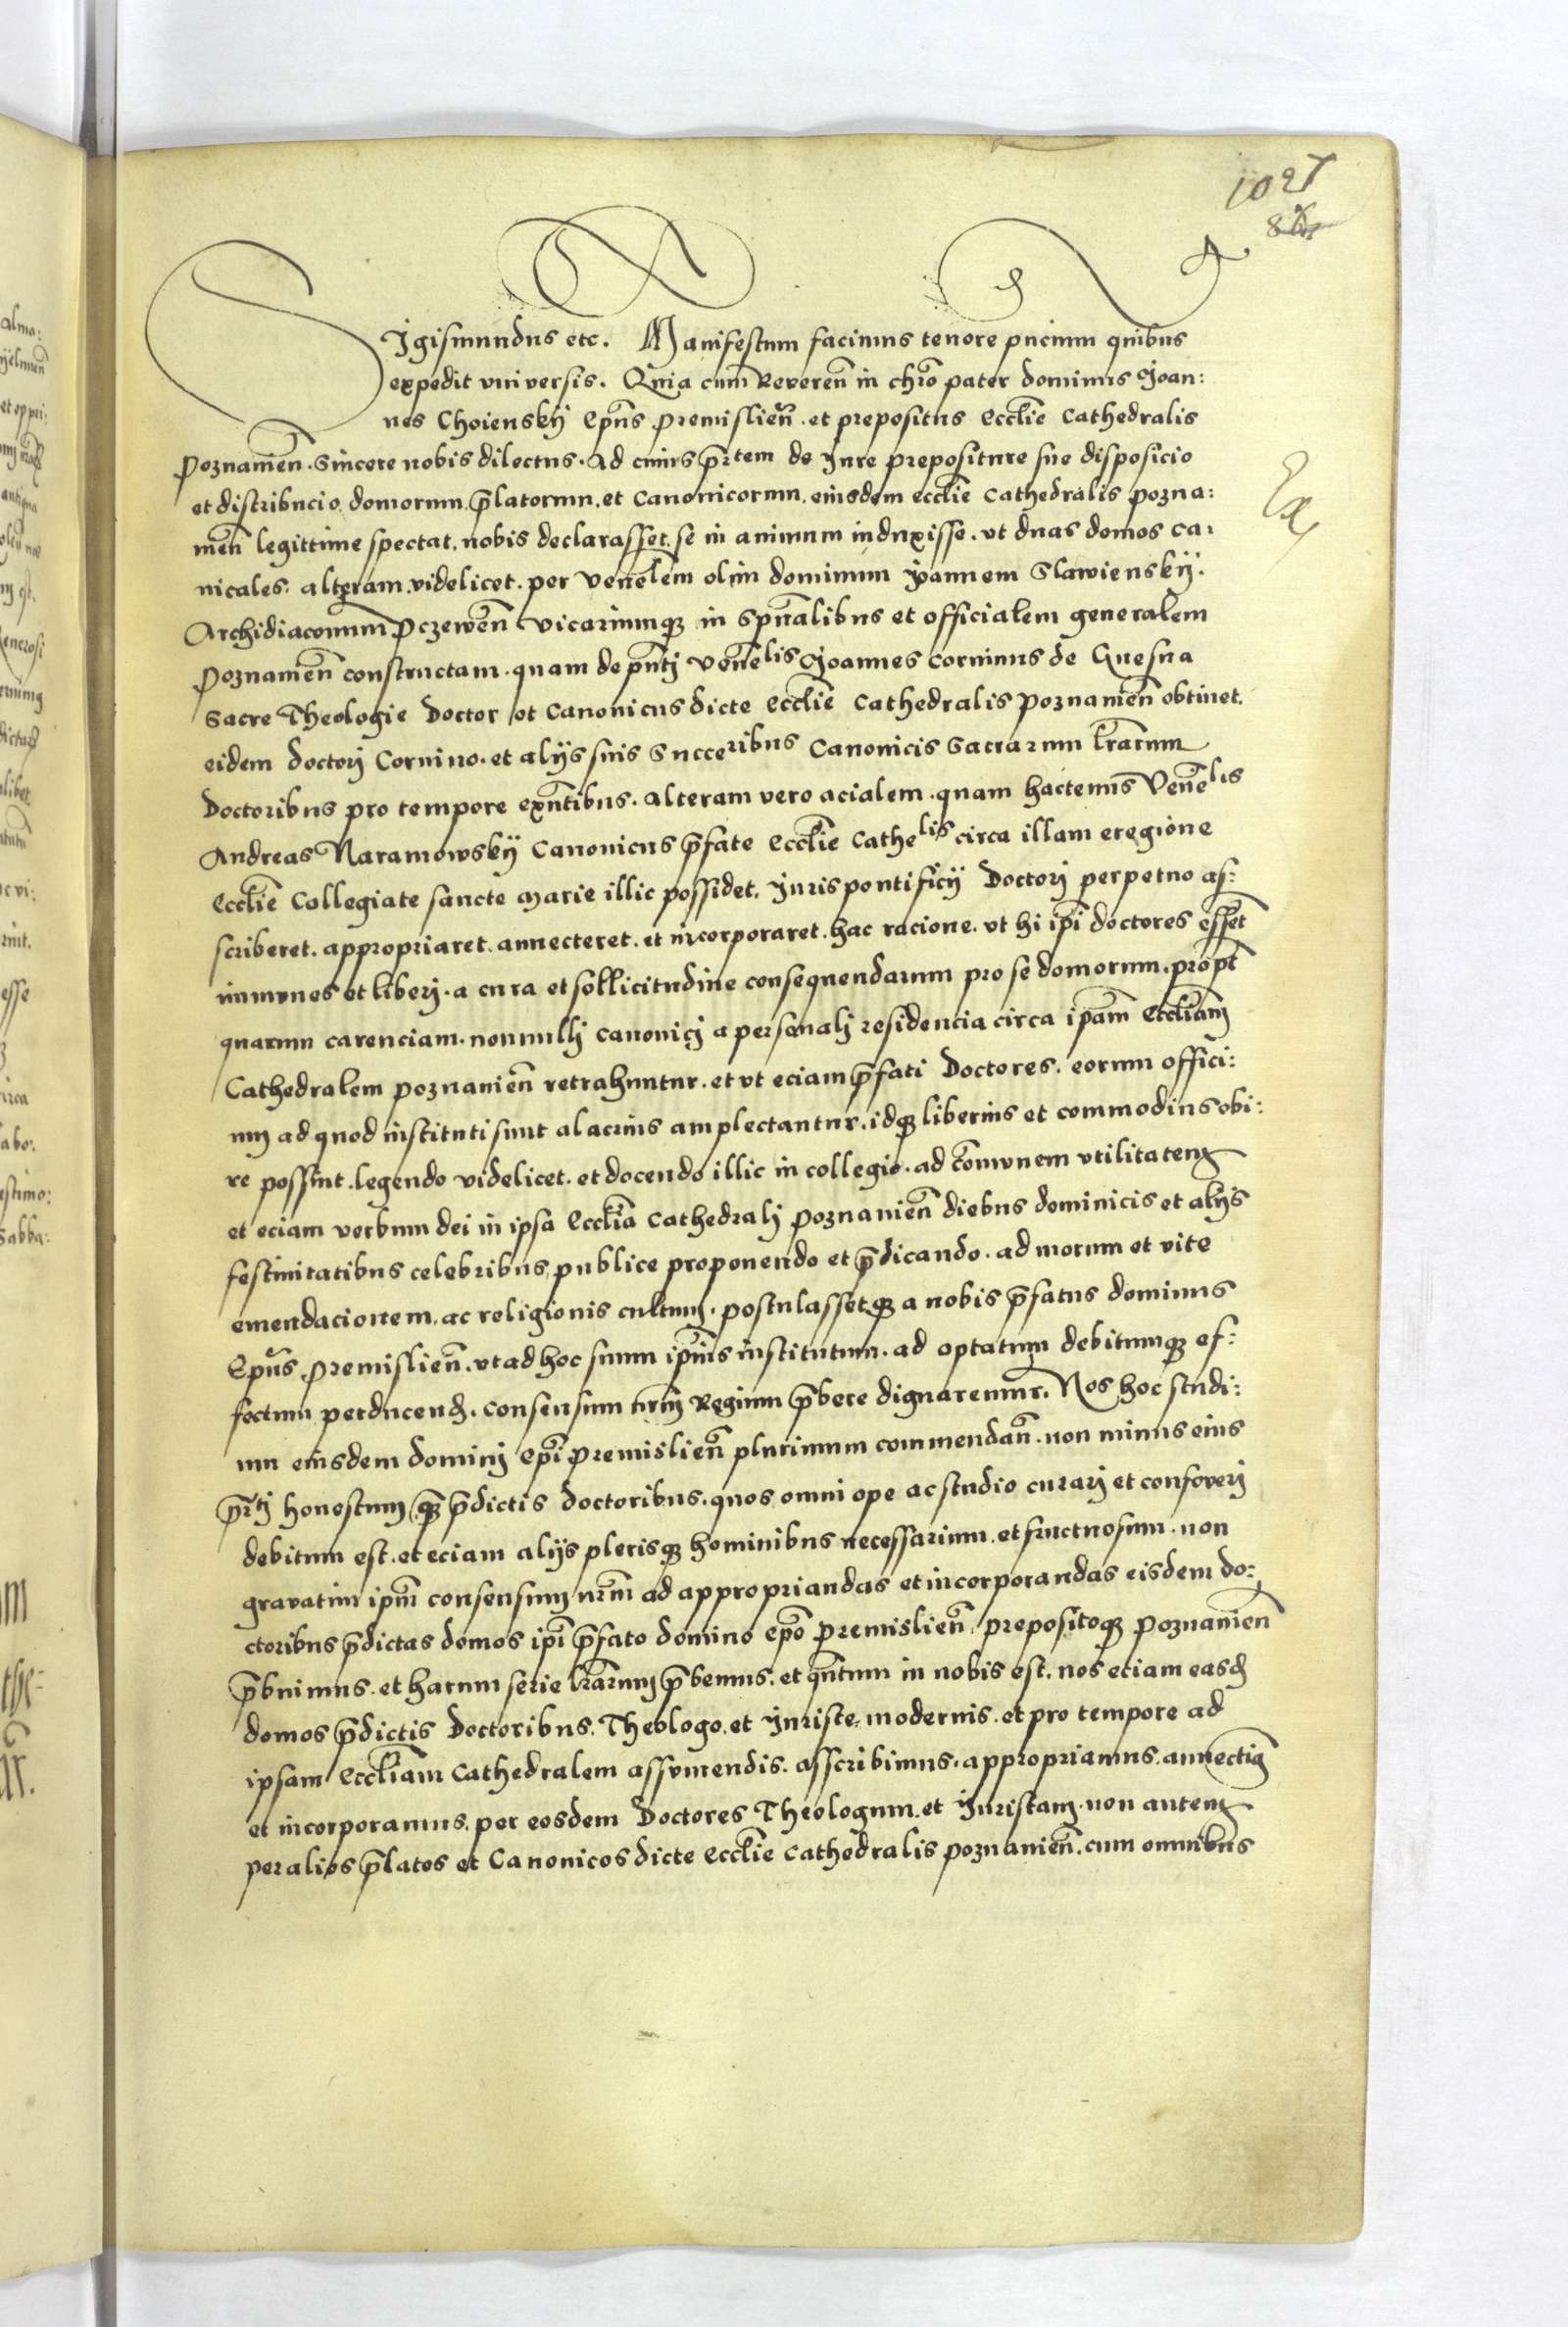 1027
Igismundus etc. Manifestum facimus tenore pñcium quibus
expedit vniversis. Quia cum Reveren̄ in chr̄o pater dominus Joan:
nes Choiensky Ep̄us Premislien̄. et prepositus Eccl̄ie Cathedralis
Poznanien̄. Sincere nobis dilectus. Ad cuius p̄rtem de Jure prepositure sue disposicio
et distribucio domorum p̄latorum. et Canonicorum. eiusdem eccl̄ie Cathedralis pozna:
nien̄ legittime spectat. nobis declarasset. se in animum induxisse. vt duas domos ca:
nicales. alteram videlicet. per Venelem olim dominum Joannem Slawiensky.
Archidiaconum Pczewen̄ Vicariumq3 in sp̄ualibus et officialem generalem
Poznanien̄ constructam. quam de pn̄tj Ven̄elis Joannes Corvinus de Gnesna
Sacre Theologie Doctor et Canonicus dicte Eccl̄ie Cathedralis Poznanien̄ obtinet.
eidem Doctorj Corvino. et alijs suis Succeribus Canonicis Sacrarum l̄rarum
Doctoribus pro tempore exn̄tibus. Alteram vero acialem. quam hactenus Ven̄elis
Andreas Naramowsky Canonicus p̄fate Eccl̄ie Cathelis circa illam eregione
Eccl̄ie Collegiate sancte Marie illic possidet. Juris pontificij Doctorj perpetuo as:
scriberet. appropriaret. annecteret. et incorporaret. hac racione. vt hi ip̄i doctores esse̅t
immunes et liberj. a cura et sollicitudine consequendarum pro se domorum. propt̄
quarum carenciam. nonnullj canonicj a personalj residencia circa ip̄am Eccl̄iam
Cathedralem Poznanien̄ retrahuntur. et vt eciam p̄fati Doctores. eorum offici:
um ad quod instituti sunt alacrius amplectantur. idq3 liberius et commodius obi:
re possint. legendo videlicet. et docendo illic in collegio. ad com̄unem vtilitatem
et eciam verbum dei in ipsa Eccl̄ia Cathedralj Poznanien̄ diebus dominicis et alijs
festivitatibus celebribus publice proponendo et p̄dicando. ad morum et vite
emendacionem. ac religionis cultum. postulassetq3 a nobis p̄fatus dominus
Ep̄us Premislien̄. vt ad hoc suum ip̄ius institutum. ad optatum debitumq3 ef:
fectum perducend. consensum nr̄m Regium p̄bere dignaremur. Nos hoc studi:
um eiusdem dominj ep̄i Premislien̄ plurimum commendan̄. non minus eius
p̄rtj honestum q3 p̄dictis doctoribus. quos omni ope ac studio curarj et confoverj
debitum est. et eciam alijs plerisq3 hominibus necessarium. et fructuosum. non
gravatim ip̄m consensum nr̄m ad appropriandas et incorporandas eisdem do:
ctoribus p̄dictas domos ip̄i p̄fato domino ep̄o Premislien̄. prepositoq3 Poznanien̄
p̄buimus. et harum serie l̄rarum p̄bemus. et qn̄tum in nobis est. nos eciam easd
domos p̄dictis Doctoribus. Theologo. et Juriste. modernis. et pro tempore ad
ipsam Eccl̄iam Cathedralem assvmendis. asscribimus. appropriamus. annectim̄
et incorporamus. per eosdem Doctores Theologum. et Juristam. non autem
per alios p̄latos et Canonicos dicte Eccl̄ie Cathedralis poznanien̄. cum omnibus